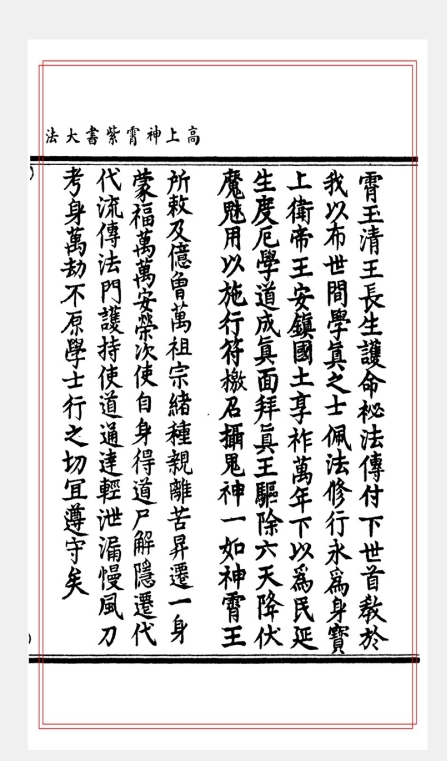 高上神霄紫書大法
霄玉清王長生護命祕法傳付下世首教於
我以布世間學真之士佩法修行永為身寶
上衛帝王安鎮國土享祚萬年下以為民延
生度厄學道成真面拜真王驅除六天降伏
魔魅用以施行符檄召攝鬼神一如神霄王
所敕及億曾萬祖宗緒種親離苦昇遷一身
蒙福萬萬安榮次使自身得道尸解隱遷代
代流傳法門護持使道通達輕泄漏慢風刀
考身萬劫不原學士行之切宜遵守矣